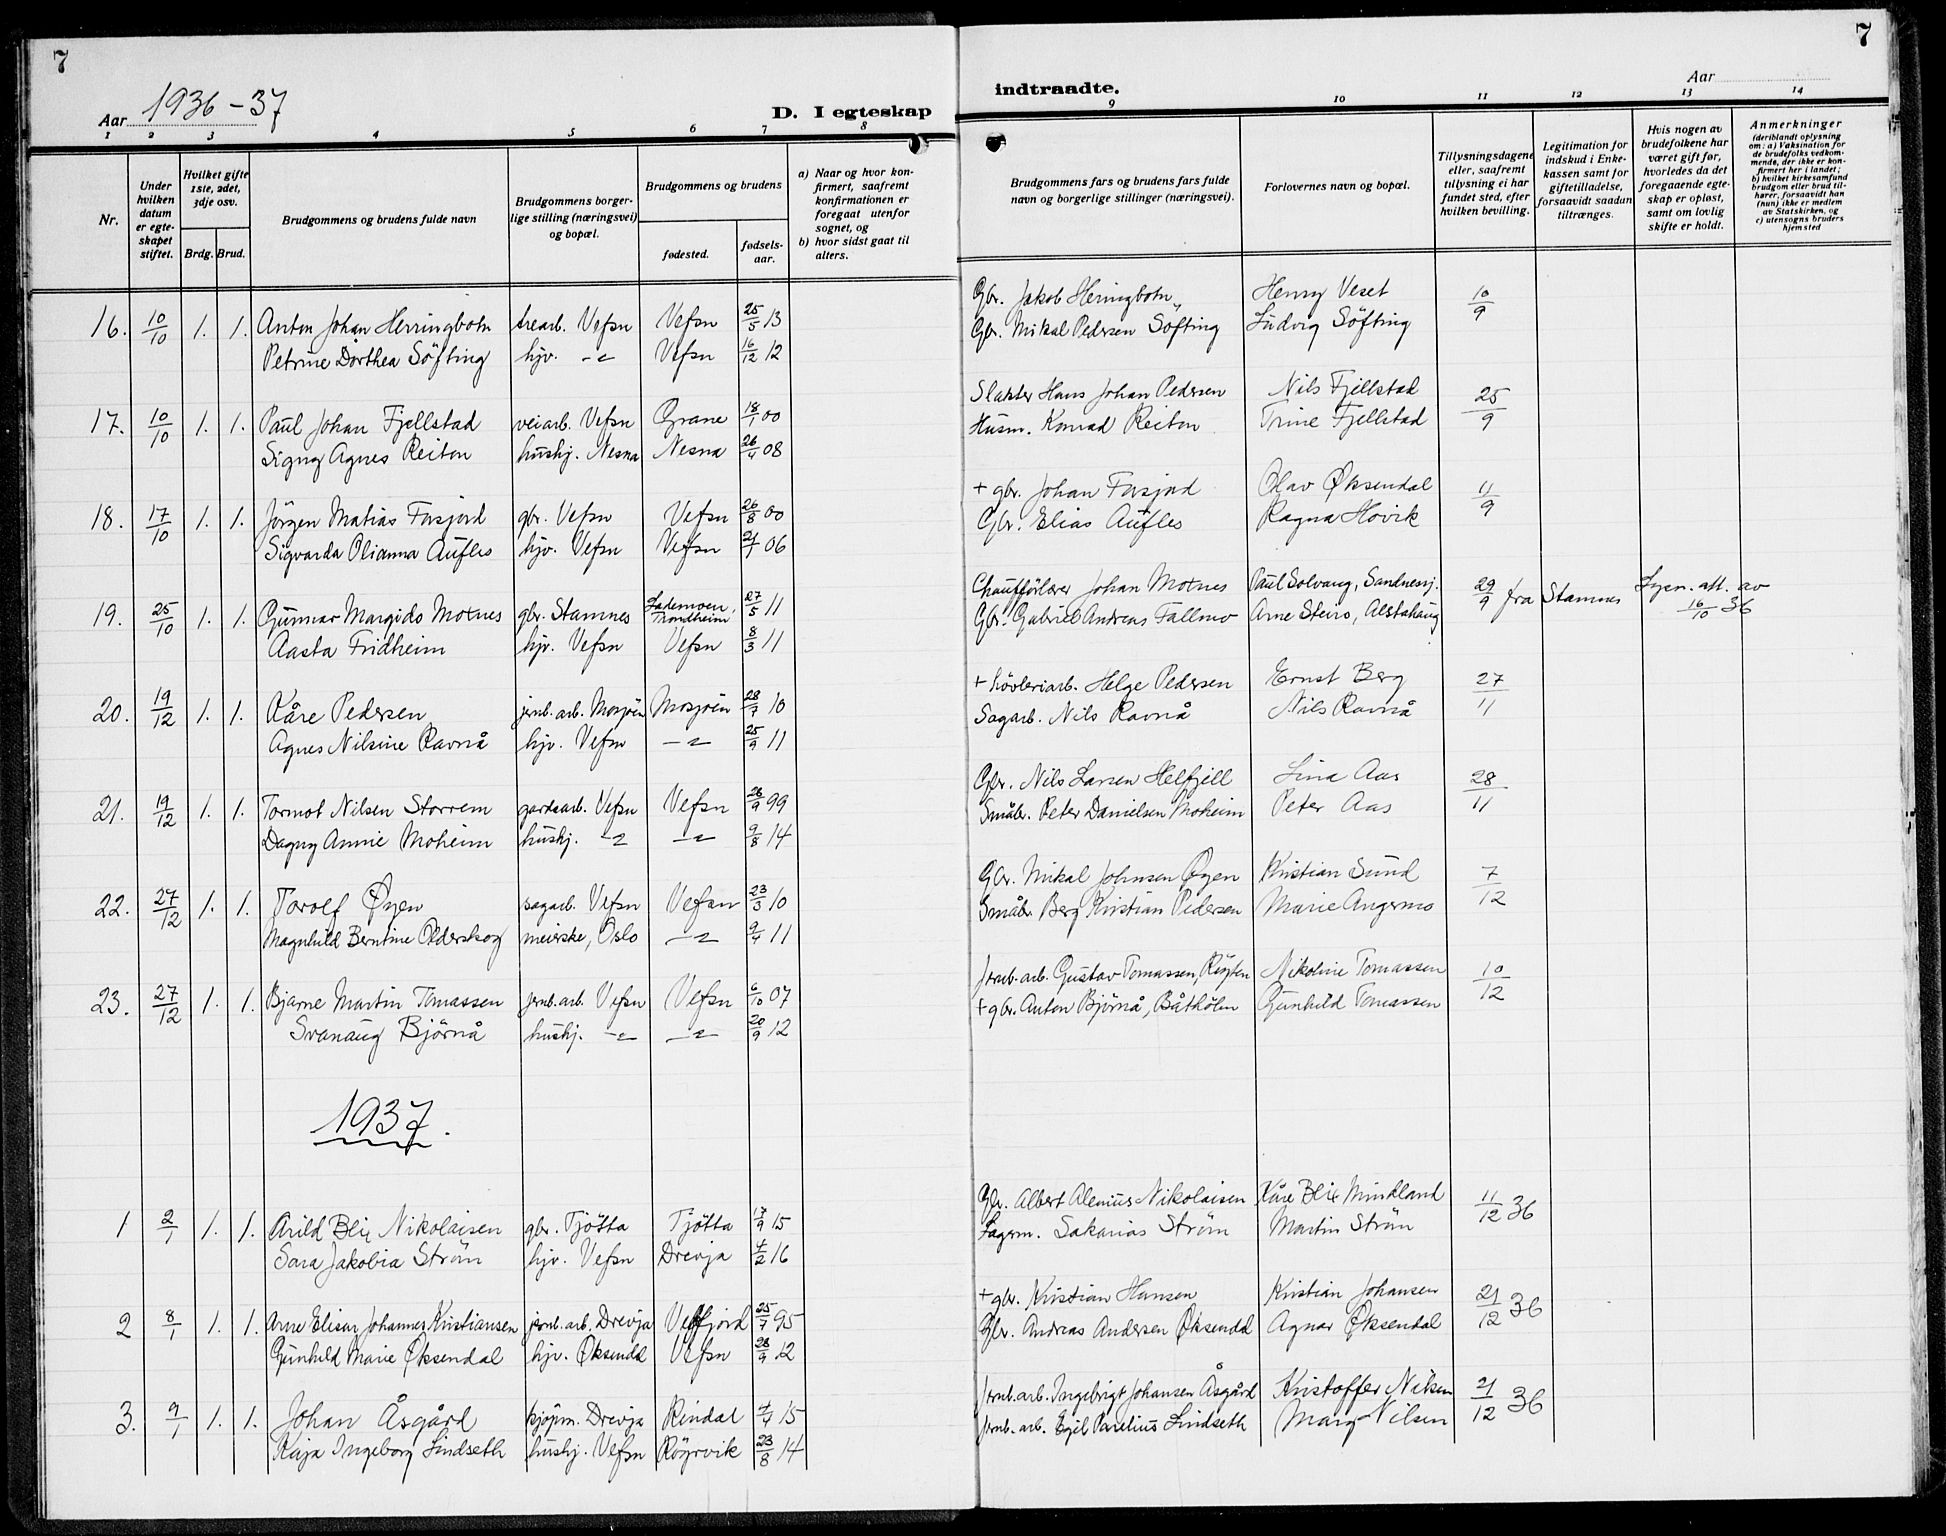 7
Aar 1936-37
D. I egteskap
1 2 3 4 5 6 7 8
Nr.
Under hvilken datum er egteskapet stiftet.
Hvilket gifte 1ste, 2det, 3dje osv.
Brdg. Brud.
Brudgommens og brudens fulde navn
Brudgommens borgerlige stilling (næringsvei) og bopæl.
Brudgommens og brudens
fødested.
fødselsaar.
a) Naar og hvor konfirmert, saafremt konfirmationen er foregaat utenfor sognet, og
b) hvor sidst gaat til alters.
16. 10/10 1. 1. Anton Johan Herringbotn trearb. Vefsn Vefsn 25/5 13
Petrine Dorthea Söfting hjv. -"- Vefsn 16/12 12
17. 10/10 1. 1. Paul Johan Fjellstad veiarb. Vefsn Grane 18/1 00
Signy Agnes Reiton hushj. Nesna Nesna 26/4 08
18. 17/10 1. 1. Jörgen Matias Forsjord gbr. Vefsn Vefsn 26/8 00
Sigvarda Olianna Aufles hjv. Vefsn Vefsn 21/1 06
19. 25/10 1. 1. Gunnar Margido Motnes gbr. Stamnes Lademoen, Trondheim 27/5 11
Aasta Fridheim hjv. Vefsn Vefsn 8/3 11
20. 19/12 1. 1. Kåre Pedersen jernb. arb. Mosjöen Mosjöen 28/7 10
Agnes Nilsine Ravnå hjv. Vefsn -"- 25/9 11
21. 19/12 1. 1. Tormot Nilsen Storrem gardsarb. Vefsn Vefsn 26/9 99
Dagny Annie Moheim hushj. -"- -"- 9/8 14
22. 27/12 1. 1. Torolf Øyen sagarb. Vefsn Vefsn 23/3 10
Magnhild Berntine Olderskog meierske, Oslo -"- 9/4 11
23. 27/12 1. 1. Bjarne Martin Tomassen jernb. arb. Vefsn Vefsn 6/10 07
Svanaug Björnå hushj. -"- -"- 20/9 12
1937.
1 2/1 1. 1. Arild Blix Nikolaisen gbr. Tjötta Tjötta 17/9 15
Sara Jakobia Ström hjv. Vefsn Drevja 4/2 16
2 8/1 1. 1. Arne Elisar Johannes Kristiansen jernb. arb. Drevja Velfjord 25/7 95
Gunhild Marie Øksendal hjv. Øksendal Vefsn 28/9 12
3. 9/1 1. 1. Johan Åsgård kjøpm. Drevja Rindal 4/4 15
Kaja Ingeborg Lindseth hushj. Vefsn Röyrvik 23/8 14
7
indtraadte.
Aar
9 10 11 12 13 14
Brudgommens fars og brudens fars fulde navn og borgerlige stillinger (næringsvei).
Forlovernes navn og bopæl.
Tillysningsdagene eller, saafremt tillysning ei har fundet sted, efter hvilken bevilling.
Legitimation for indskud i Enkekassen samt for giftetilladelse, forsaavidt saadan tiltrænges.
Hvis nogen av brudefolkene har været gift før, hvorledes da det foregaaende egteskap er opløst, samt om lovlig skifte er holdt.
Anmerkninger (deriblandt oplysning om: a) Vaksination for de brudefolks vedkommende, der ikke er konfirmert her i landet; b) hvilket kirkesamfund brudgom eller brud tilhører, forsaavidt han (hun) ikke er medlem av Statskirken, og c) utensogns bruders hjemsted
Gbr. Jakob Herringbotn Henry Veset 10/9
Gbr. Mikal Pedersen Söfting Ludvig Söfting
Slakter Hans Johan Pedersen Nils Fjellstad 25/9
Husm. Konrad Reiton Trine Fjellstad
+ gbr. Johan Forsjord Olav Øksendal 11/9
Gbr. Elias Aufles Ragna Hovik
Chaufförlærer Johan Motnes Paul Solvang, Sandnessj. 29/9 fra Stamnes Lysn. att. av 16/10 36
Gbr. Gabriel Andreas Fallmo Arne Steiro, Alstahaug
+ hövleriarb. Helge Pedersen Ernst Berg 27/11
Sagarb. Nils Ravnå Nils Ravnå
Gbr. Nils Larsen Helfjell Lina Aas 28/11
Småbr. Peter Danielsen Moheim Peter Aas
Gbr. Mikal Johnsen Øyen Kristian Sund 7/12
Småbr. Berg Kristian Pedersen Marie Angermo
Jernb. arb. Gustav Tomassen, Nikoline Tomassen 10/12
+ gbr. Anton Björnå, Båthölen Gunhild Tomassen
Gbr. Albert Alenius Nikolaisen Kåre Blix Mindland 11/12 36
Lagerm. Sakarias Ström Martin Ström
+ gbr. Kristian Hansen Kristian Johansen 21/12 36
Gbr. Andreas Andersen Øksendal Agnar Øksendal
Jernb. arb. Ingebrigt Johansen Åsgård Kristoffer Nilsen 21/12 36
Jernb. arb. Egil Parelius Lindseth Marg Nilsen